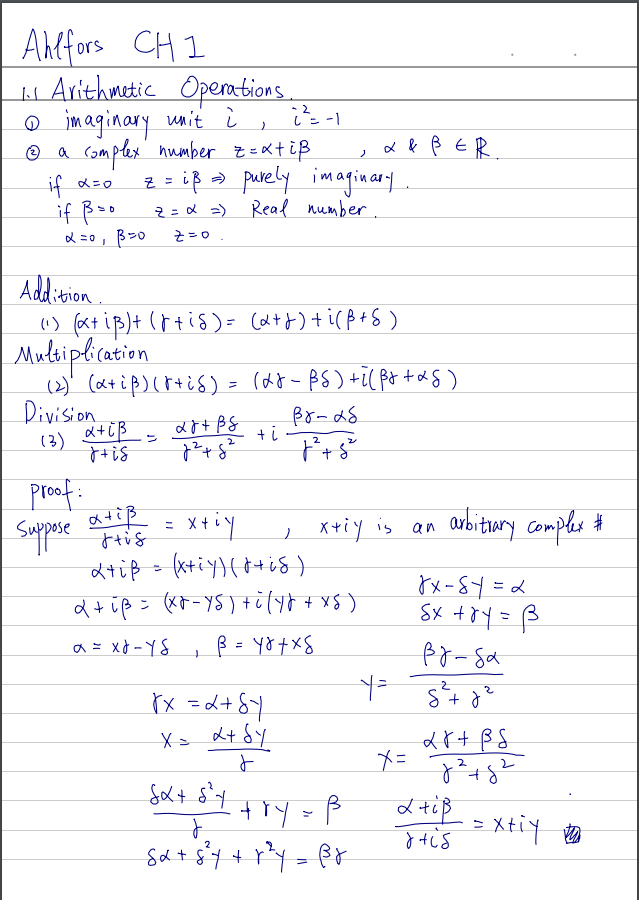 Ahlfors CH 1
1.1 Arithmetic Operations.
① imaginary unit i , i² = -1
② a complex number z = α + iβ , α & β ∈ ℝ.
if α = 0 z = iβ ⇒ purely imaginary.
if β = 0 z = α ⇒ Real number.
α = 0, β = 0 z = 0.
Addition.
(1) (α + iβ) + (γ + iδ) = (α + γ) + i(β + δ)
Multiplication
(2) (α + iβ)(γ + iδ) = (αγ - βδ) + i(βγ + αδ)
Division
(3) (α + iβ)/(γ + iδ) = (αγ + βδ)/(γ² + δ²) + i (βγ - αδ)/(γ² + δ²)
proof:
Suppose (α + iβ)/(γ + iδ) = x + iy , x + iy is an arbitrary complex #
α + iβ = (x + iy)(γ + iδ)
α + iβ = (xγ - yδ) + i(yγ + xδ)
α = xγ - yδ , β = yγ + xδ
γx = α + δy
x = (α + δy)/γ
(δα + δ²y)/γ + γy = β
δα + δ²y + γ²y = βγ
γx - δy = α
δx + γy = β
y = (βγ - δα)/(δ² + γ²)
x = (αγ + βδ)/(γ² + δ²)
(α + iβ)/(γ + iδ) = x + iy